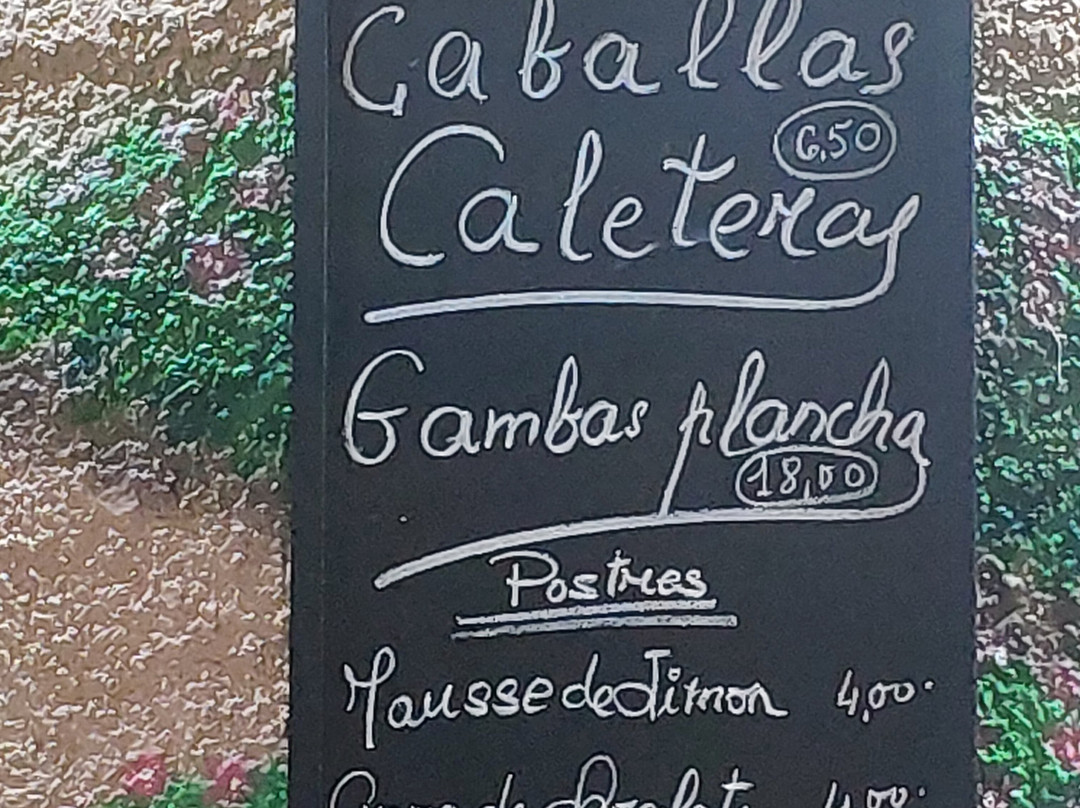 Caballas
6,50
Caleteras
Gambas plancha
18,00
Postres
Mousse de Limon 4,00
4,00